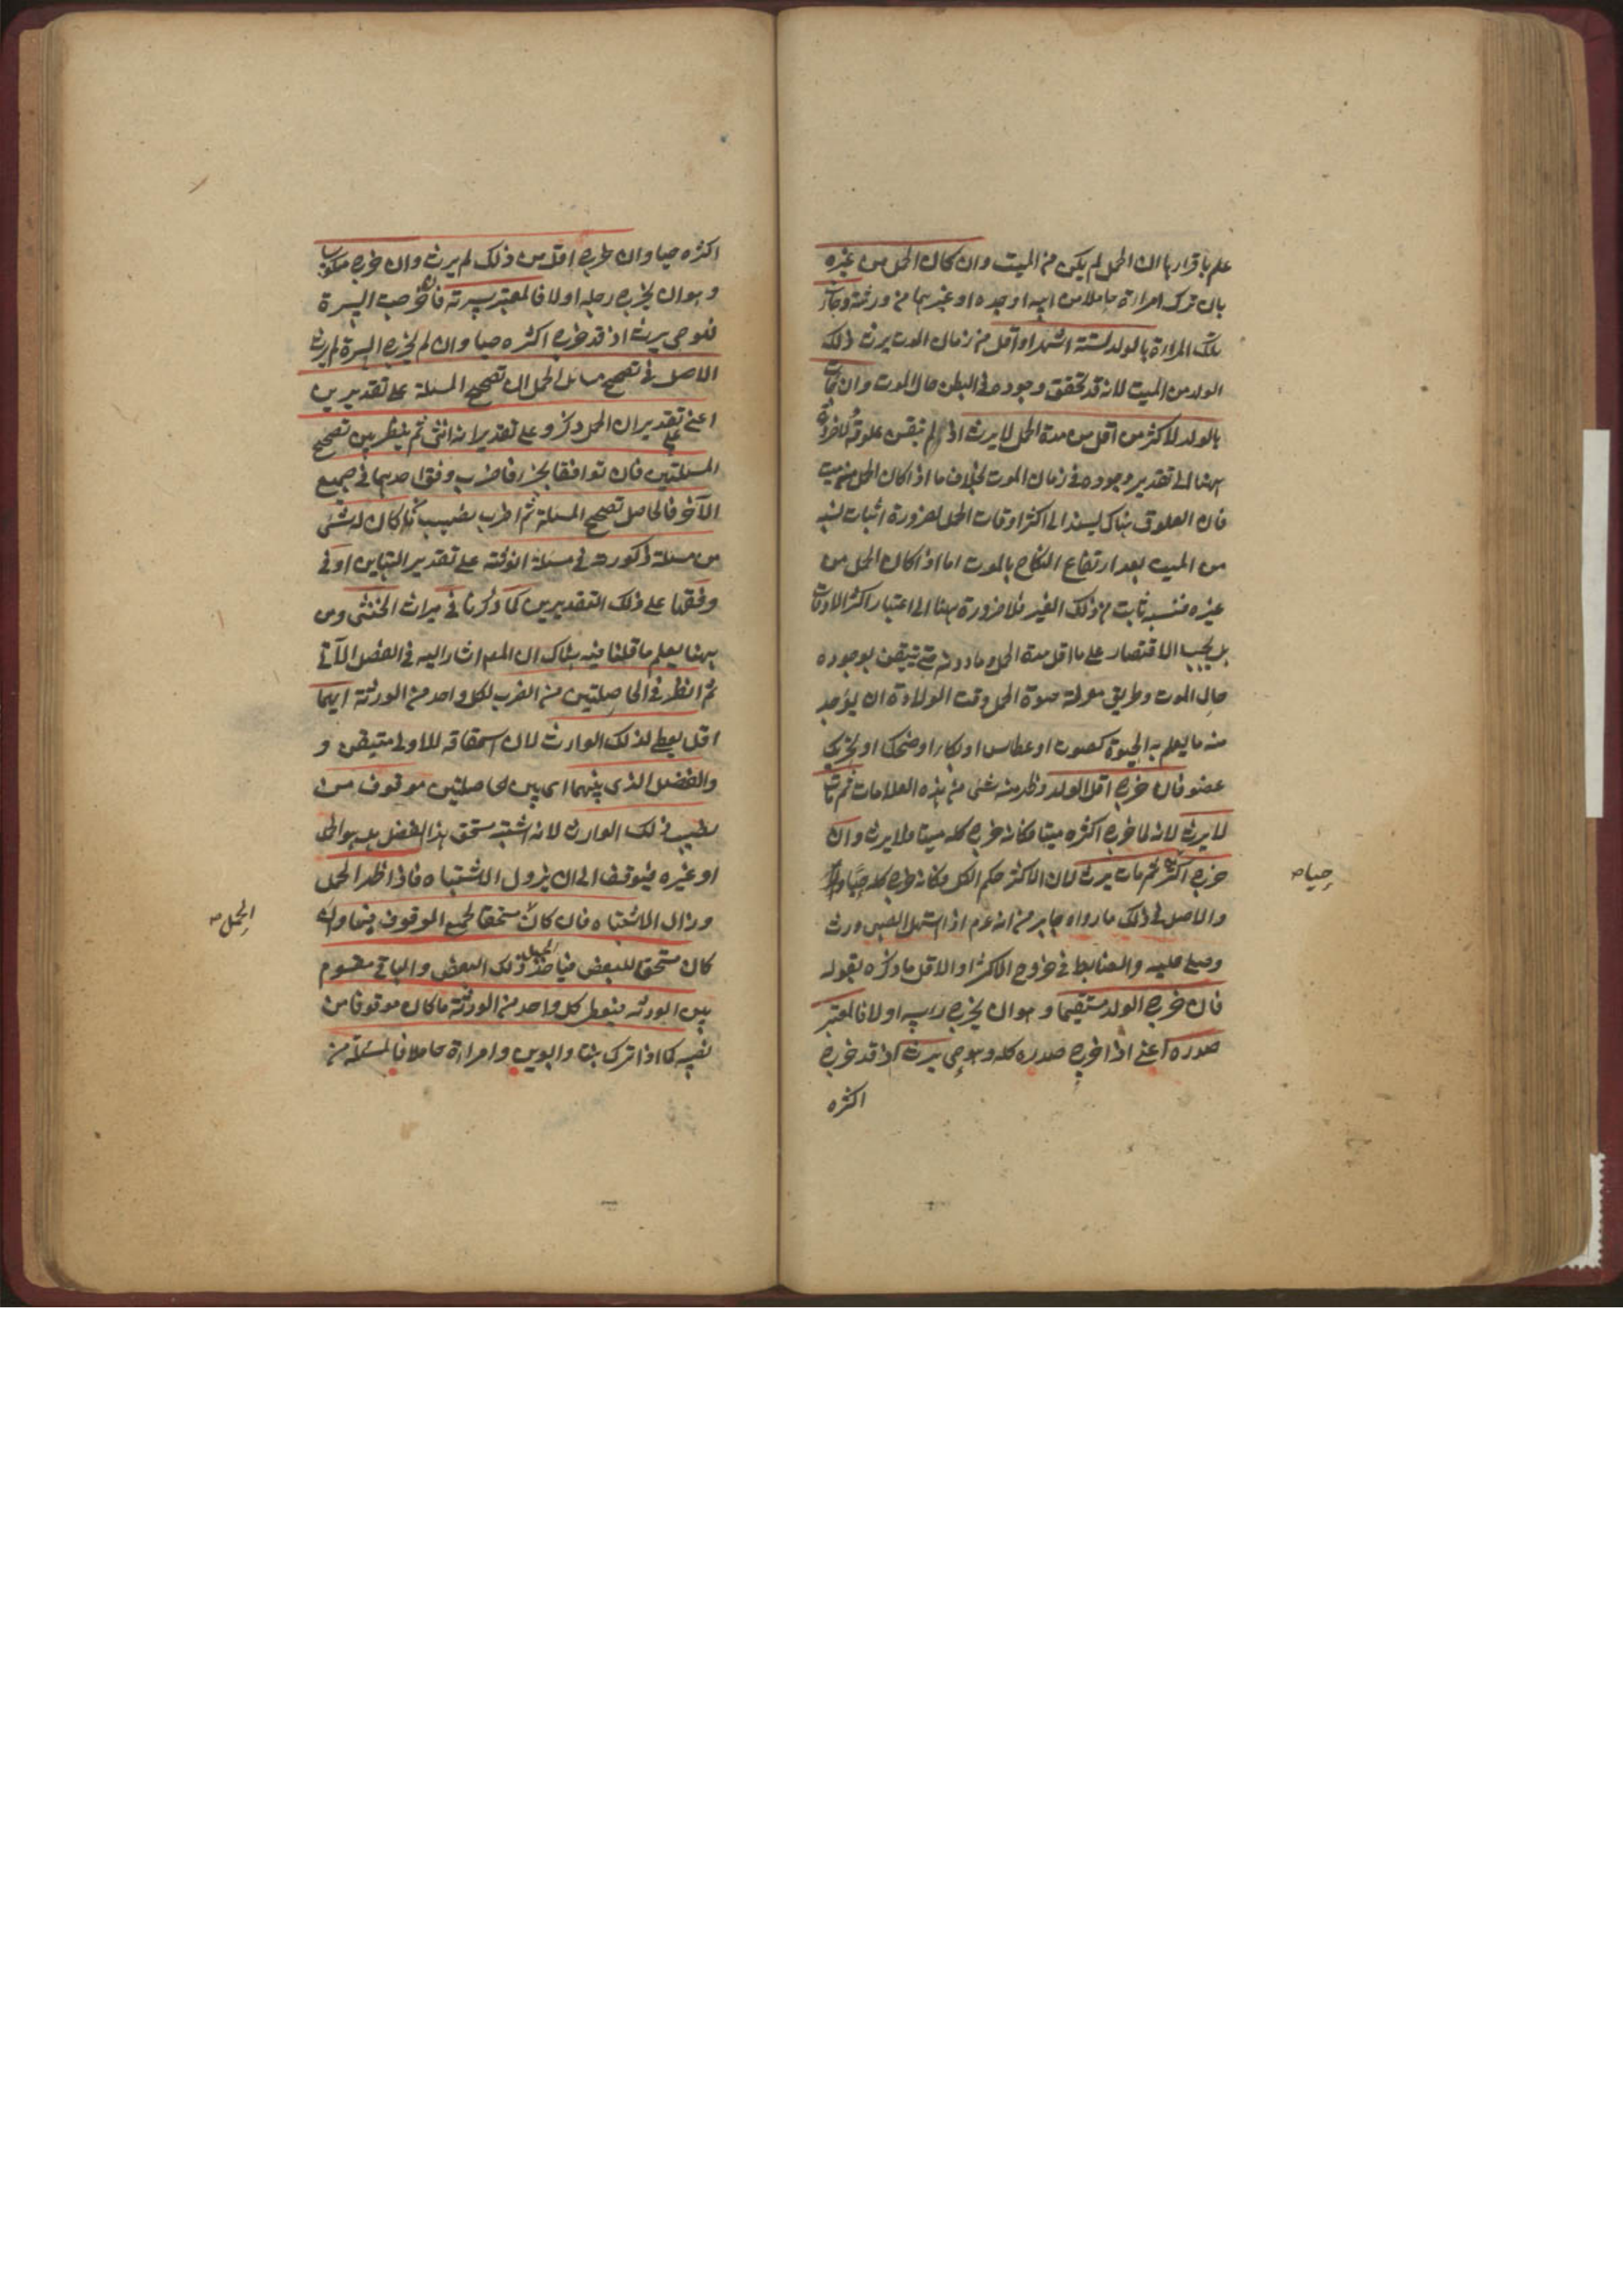 علم باقرارها ان الحمل لم يكن من الميت وان كان الحمل من غيره
بان ترك امراءة حاملا من ابيه او جده او غيرهما من ورثته وجاءت
تلك المراءة بالولد لستة اشهر او اقل من زمان الموت يرث ذلك
الولد من الميت لانه قد تحقق وجوده في البطن حال الموت وان جاءت
بالولد لاكثر من اقل من مدة الحمل لا يرث اذ لم تيقن علوقه
ههنا الى تقدير وجوده في زمان الموت بخلاف ما اذا كان الحمل من ميت
فان العلوق هناك يسند الى اكثر اوقات الحمل لضرورة اثبات نسبه
من الميت بعد ارتفاع النكاح بالموت اما اذا كان الحمل من
غيره فنسبه ثابت من ذلك الغير فلا ضرورة ههنا الى اعتبار اكثر الاوقات
بل يجب الاقتصار على ما اقل مدة الحمل وما دونه حتى تيقن بوجوده
حال الموت وطريق معرفة حيوة الحمل وقت الولادة ان يوجد
منه ما يعلم به الحيوة كصوت او عطاس او بكاء او ضحك او تحريك
عضو فان خرج اقل الولد وظهر منه شئ من هذه العلامات ثم مات
لا يرث لانه لما خرج اكثره ميتا فكانه خرج كله ميتا فلا يرث وان
خرج اكثره ثم مات يرث لان الاكثر حكم الكل فكانه خرج كله حيا
حيا صح
والاصل في ذلك ما رواه جابر من انه عم اذا استهل الصبي ورث
وصلى عليه والضابط في خروج الاكثر او الاقل ما ذكره بقوله
فان خرج الولد مستقيما وهو ان يخرج راسه اولا فالمعتبر
صدره اعنى اذا خرج صدره كله وهو حى يرث اذ قد خرج
اكثره
اكثره حيا وان خرج اقل من ذلك لم يرث وان خرج منكوسا
وهو ان يخرج رجله اولا فالمعتبر سرته فان خرجت السرة
فهو حى يرث اذ قد خرج اكثره حيا وان لم يخرج السرة لم يرث
الاصل في تصحيح مسائل الحمل ان تصحح المسئلة على تقديرين
اعنى تقدير ان الحمل ذكر وعلى تقدير انه انثى ثم ينظر بين تصحيح
المسئلتين فان توافقا بجزء فاضرب وفق احدهما في جميع
الآخر فالحاصل تصحيح المسئلة ثم اضرب نصيب كان له شئ
من مسئلة ذكورته في مسئلة انوثته على تقدير التباين او في
وفقها على ذلك التقديرين كما ذكرنا في ميراث الخنثى ومن
ههنا يعلم ما قلنا فيه هناك ان المص اشار اليه في الفصل الآتى
ثم انظر في الحاصلتين من الضرب لكل واحد من الورثة ايهما
اقل يعطى لذلك الوارث لان استحقاقه للاول متيقن و
والفضل الذى بينهما اى بين الحاصلتين موقوف من
نصيب ذلك الوارث لانه اشتبه مستحق هذا الفضل هل هو الحمل
او غيره فيتوقف الى ان يزول الاشتباه فاذا ظهر الحمل
وزال الاشتباه فان كان مستحقا لجميع الموقوف فبها وان
الحمل صح
كان مستحق للبعض فياخذ الحمل ذلك البعض والباقى مقسوم
بين الورثة فيعطى كل واحد من الورثة ما كان موقوفا من
نصيبه كما اذا ترك بنتا وابوين وامراءة حاملا فالمسئلة من